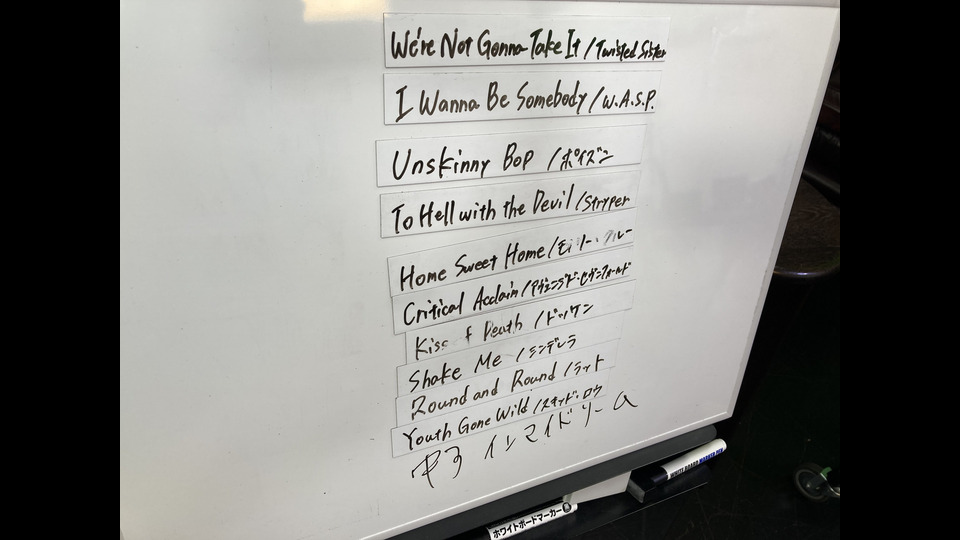 We're Not Gonna Take It / Twisted Sister
I Wanna Be Somebody / W.A.S.P.
Unskinny Bop / ポイズン
To Hell with the Devil / Stryper
Home Sweet Home / モトリー・クルー
Critical Acclaim / アヴェンジド・セヴンフォールド
Kiss of Death / ドッケン
Shake Me / シンデレラ
Round and Round / ラット
Youth Gone Wild / スキッド・ロウ
インマイドリーム
WHITE BOARD MARKER PEN
ホワイトボードマーカー